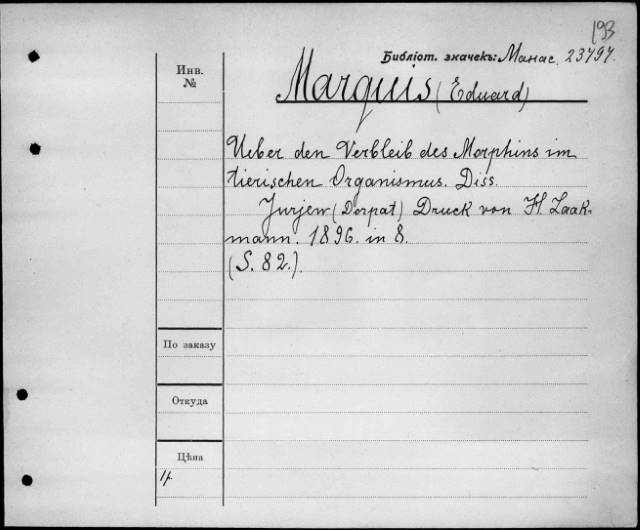 193
Библіот. значекъ: Манас. 23797.
Инв.
№
Marquis (Eduard)
Ueber den Verbleib des Morphins im
tierischen Organismus. Diss.
Jurjew (Dorpat) Druck von H. Laak-
mann. 1896. in 8.
(S. 82.).
По заказу
Откуда
Цѣна